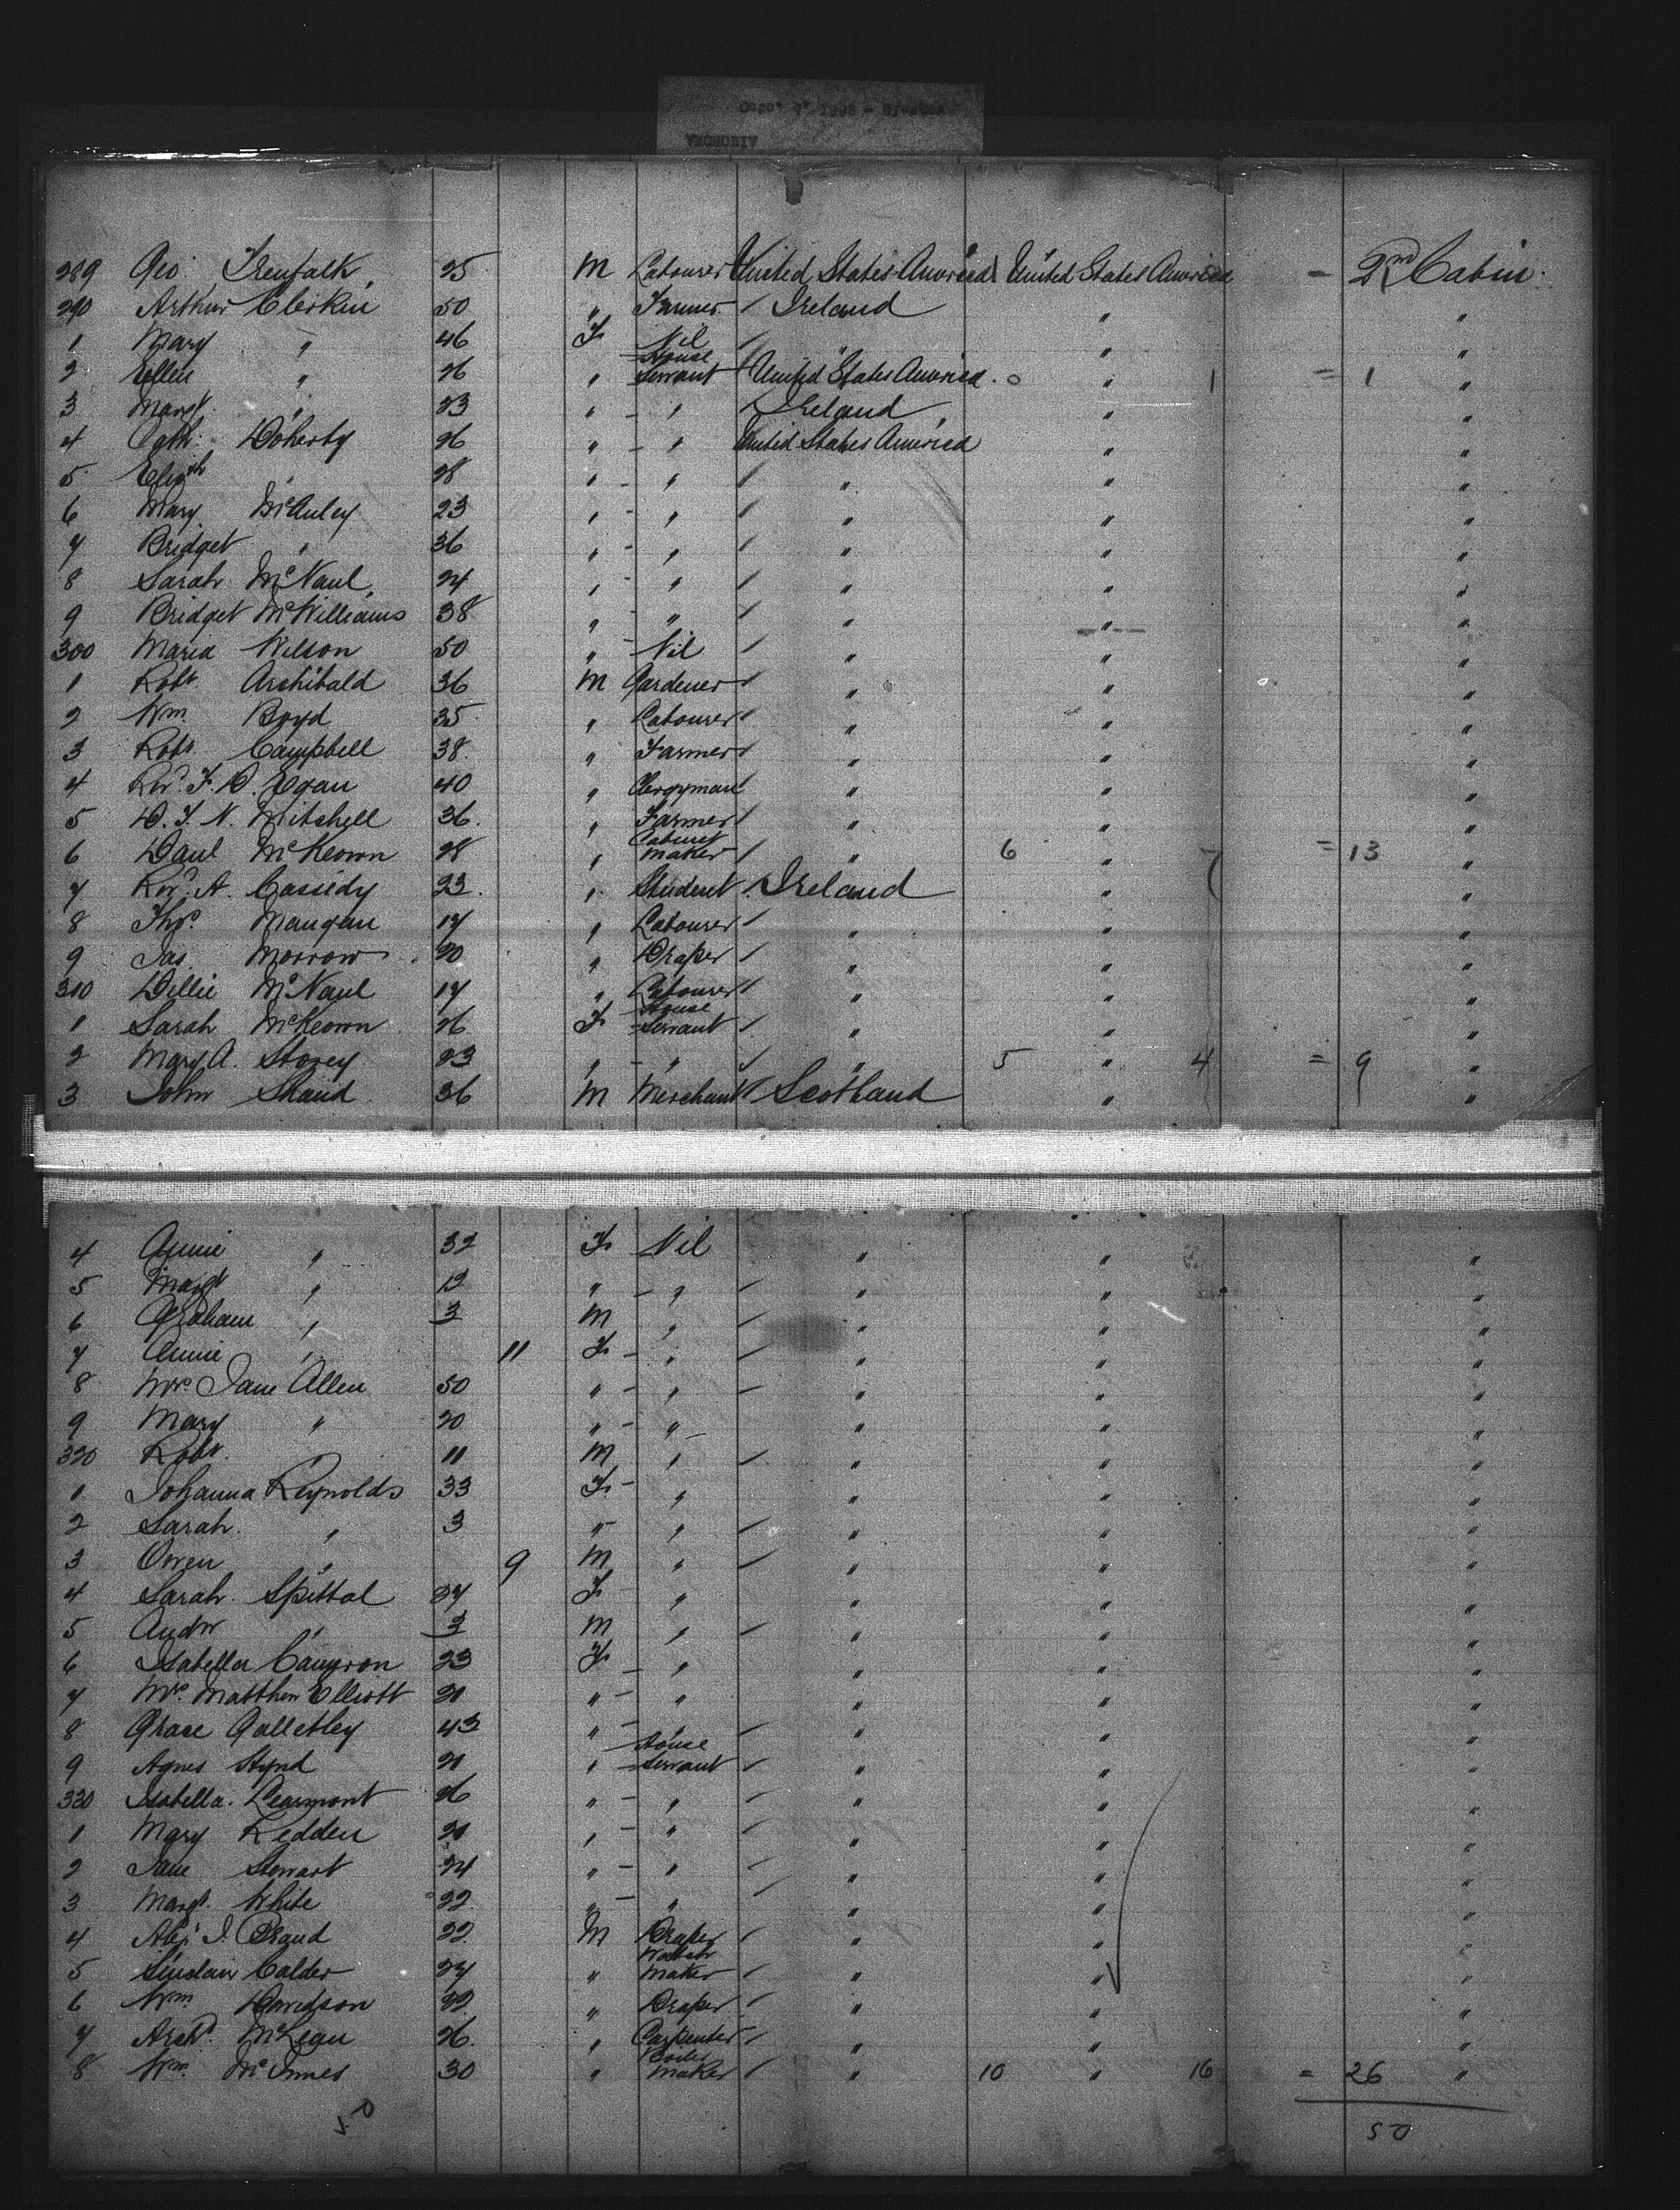 289 Geo: Trenfalk 25 M Labourer United States America United States America = 2nd Cabin
290 Arthur Clerkin 50 " Farmer / Ireland " "
1 Mary " 46 F Nil / " " "
2 Ellen " 26 " House Servant / United States America . o " 1 = 1 "
3 Margt " 23 " - " / Ireland " "
4 Cath: Doherty 26 " - " United States America " "
5 Elizth " 28 " - " / " " "
6 Mary McAuley 23 " - " / " " "
7 Bridget " 36 " - " / " " "
8 Sarah McNaul 24 " - " / " " "
9 Bridget McWilliams 38 " - " / " " "
300 Maria Wilson 50 " - Nil / " " "
1 Robt. Archibald 36 M Gardener / " " "
2 Wm. Boyd 35 " Labourer / " " "
3 Robt. Campbell 38 " Farmer / " " "
4 Revd. F. O. Egan 40 " Clergyman / " " "
5 D. F. N. Mitchell 36 " Farmer / " " "
6 Danl McKeown 28 " Cabinet Maker / " 6 " 7 = 13 "
7 Revd. A. Cassidy 23 " Student / Ireland " "
8 Thos. Mangan 17 " Labourer / " " "
9 Jas. Morrow 20 " Draper / " " "
310 Dillie McNaul 17 " Labourer / " " "
1 Sarah McKeown 26 F House Servant / " " "
2 Mary A. Storey 23 " - " / " 5 " 4 = 9 "
3 John Shand 36 M Merchant / Scotland " "
4 Annie " 32 F Nil " " "
5 Margt " 12 " - " / " " "
6 Graham " 3 M " / " " "
7 Annie " 11 F - " / " " "
8 Mrs Jane Allen 50 " - " / " " "
9 Mary " 20 " - " " " "
320 Robt. " 11 M " / " " "
1 Johanna Reynolds 33 F - " " " "
2 Sarah " 3 " " / " " "
3 Owen " 9 M " / " " "
4 Sarah Spittal 27 F " " " "
5 Andw " 3 M " / " " "
6 Isabella Cameron 23 F - " " " "
7 Mrs. Matthew Elliott 21 " - " " " "
8 Grace Galletley 43 " - " / " " "
9 Agnes Hynd 21 " House Servant / " " "
330 Isabella Learmont 26 " - " / " " "
1 Mary Ledden 21 " - " / " " "
2 Jane Stewart 24 " - " / " " "
3 Margt. White 22 " - " / " " "
4 Alex: J. Brand 22 M Draper / " " "
5 Sinclair Calder 27 " Watch Maker / " " "
6 Wm. Davidson 22 " Draper / " " "
7 Archd. McLean 26 " Carpenter / " " "
8 Wm. McInnes 30 " Boiler Maker / " 10 " 16 = 26 "
50